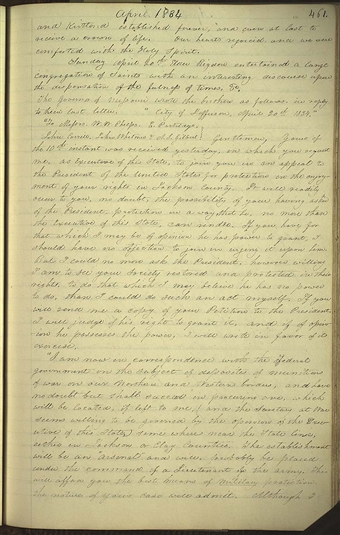 April 1834 461.
and Kirtland established forever, and even at last to
receive a crown of life. Our hearts rejoiced and we were
comforted with the Holy Spirit.
Sunday April 20th Elder Rigdon entertained a large
congregation of Saints with an interesting discourse upon
the dispensation of the fulness of times, &c.
The governor of Missouri wrote the brethren as follows in reply
to their last letter. "City of Jefferson, April 20th 1834.
"To Messrs. W. W. Phelps, E. Partridge,
John Corrill, John Whitmer & A. S. Gilbert. Gentlemen, Yours of
the 10th instant was received yesterday, in which you request
me, as Executive of this State, to join you in an appeal to
the President of the United States for protection in the enjoy-
ment of your rights in Jackson County. It will readily
occur to you, no doubt, the possibility of your having asked
of the President protection in a way that he, no more than
the Executive of this State, can render. If you have for
that which I may be of opinion he has power to grant, I
should have no objection to join in urging it upon him.
But I could no more ask the President, however willing
I am to see your Society restored and protected in their
rights, to do that which I may believe he has no power
to do, than I could do such an act myself. If you
will send me a copy of your Petition to the President
I will judge of his right to grant it, and if of opin-
ion he possesses the power, I will write in favor of its
exercise.
"I am now in correspondence with the Federal
government on the subject of deposites of munitions
of war on our Northern and Western borders, and have
no doubt but shall succeed in procuring one, which
will be located, if left to me, (and the Secretary at War
seems willing to be governed by the opinion of the Exec-
utive of this State) some where near the State line,
either in Jackson or Clay Counties. The establishment
will be an "arsenal" and will probably be placed
under the command of a Lieutenant in the army. This
will afford you the best means of military protection
the nature of your case will admit. Although I